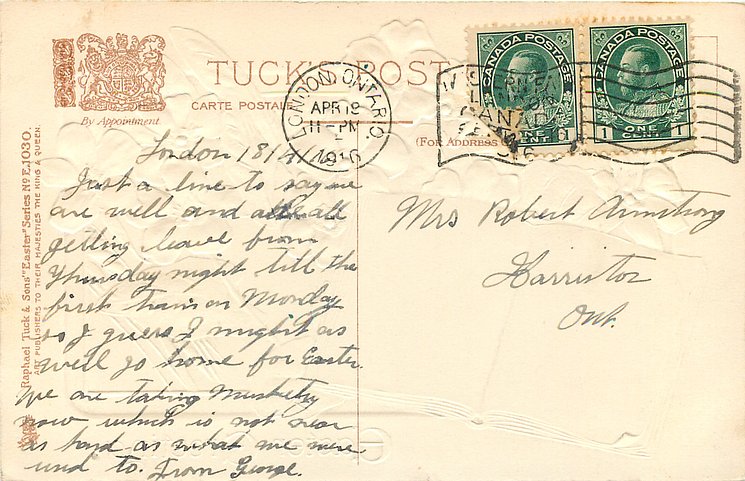 TUCK'S POST
CARTE POSTALE
By Appointment
(FOR ADDRESS
Raphael Tuck & Sons' "Easter" Series No E.1030.
ART PUBLISHERS TO THEIR MAJESTIES THE KING & QUEEN.
LONDON, ONTARIO
APR 18
11-PM
1916
CANADA POSTAGE
ONE CENT
CANADA POSTAGE
1 ONE CENT 1
CANADA
London 18/4/16
Just a line to say we
are well and are all
getting leave from
Thursday night till the
first train on Monday
so I guess I might as
well go home for Easter.
We are taking Musketry
now which is not near
as hard as what we were
used to. From George.
Mrs Robert Armstrong
Harriston
Ont.